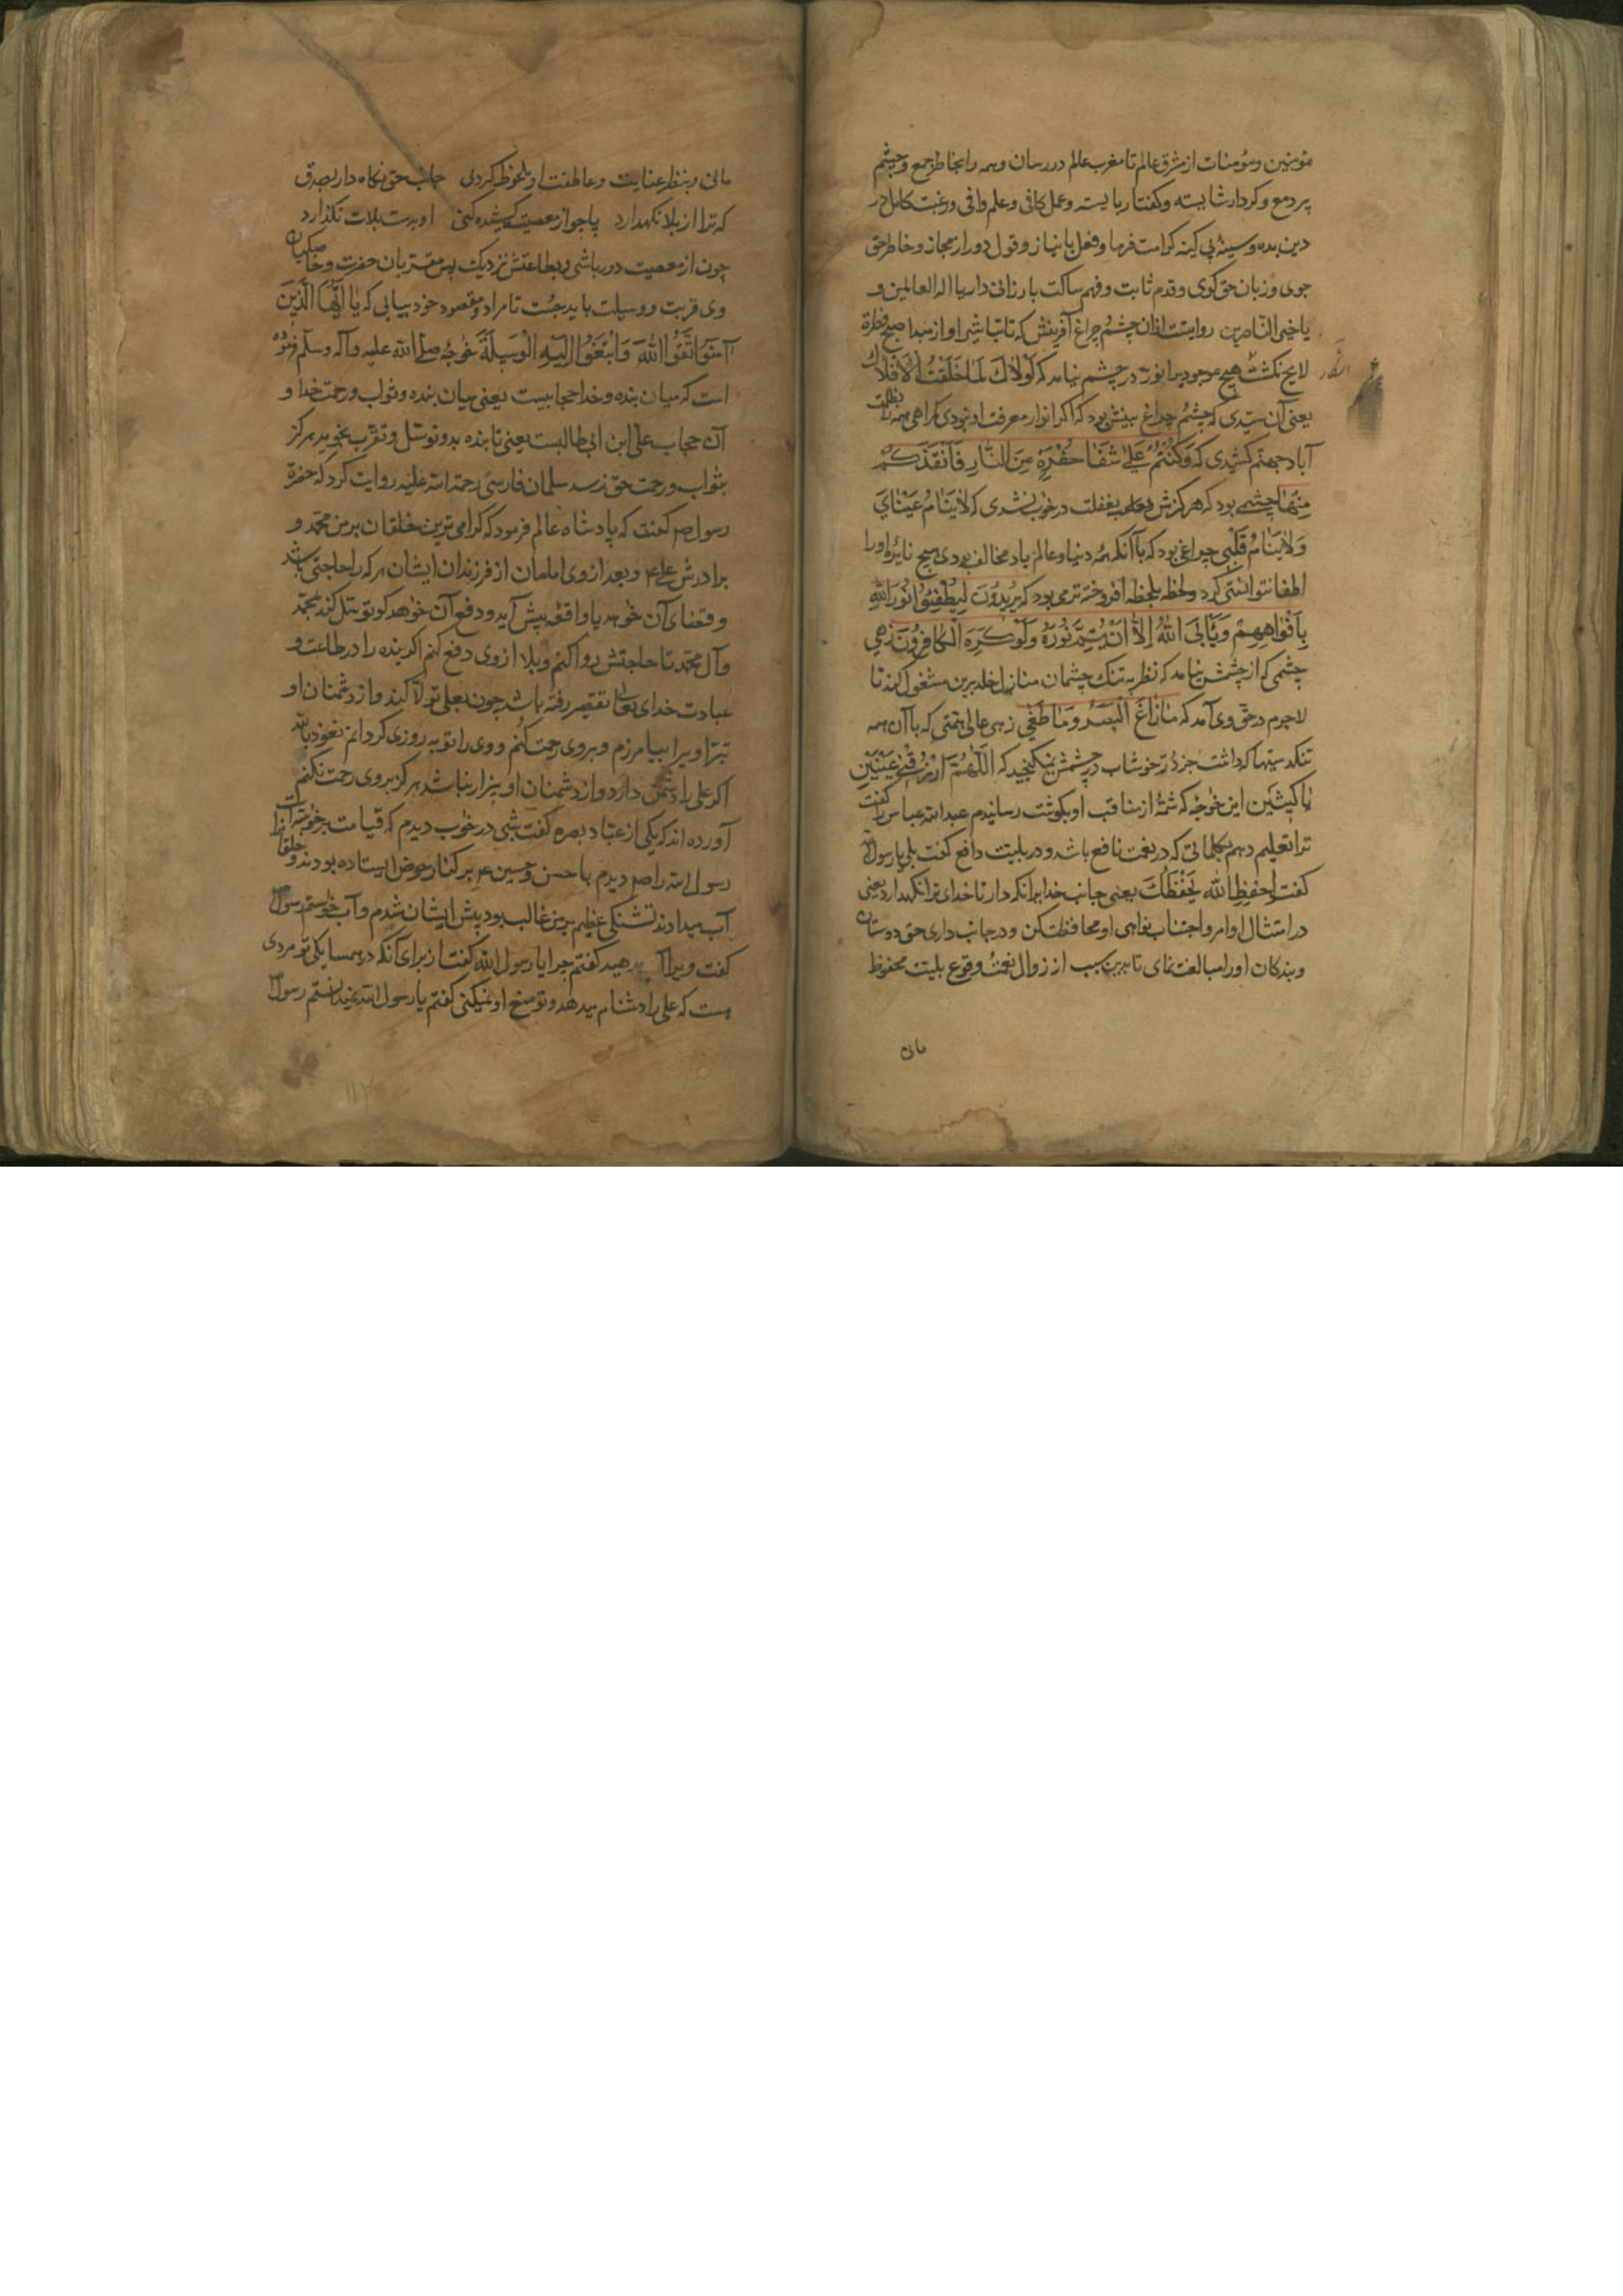 مؤمنین ومؤمنات از مشرق عالم تا مغرب عالم در رسان وهمه را بخاطر جمع وچشم
پر دمع وکردار شایسته وکفتار بایسته وعمل کافی وعلم وافی ورغبت کامل در
دین بده وسینه بی کینه کرامت فرما وفعل با نیاز وقول دور از مجاز وخاطر حق
جوی وزبان حق کوی وقدم ثابت وفهم ساکت بارزانی دار یا اله العالمین و
یا خیر الناصرین روایتست ازان چشم چراغ آفرینش که تا تباشیر او از مبدا صبح فطرة
لایح نکشت هیچ موجود برا نور در چشم نیامد که لَوْلَاكَ لَمَا خَلَقْتُ الْأَفْلَاكَ
یعنی آن سیدی که چشم چراغ بینش بود که اکر انوار معرفت او نبودی کمراهی همه را بظلمت
آباد جهنم کشیدی که وَكُنْتُمْ عَلَىٰ شَفَا حُفْرَةٍ مِنَ النَّارِ فَأَنْقَذَكُمْ
مِنْهَا چشمی بود که هرکزش بغفلت در خواب نشدی که لَا يَنَامُ عَيْنَايَ
وَلَا يَنَامُ قَلْبِي چراغی بود که با آنکه همه دنیا وعالم باد مخالف بودی هیچ نایره اورا
اطفا نتوانستی کرد ولحظه بلحظه افروخته تر می بود که يُرِيدُونَ لِيُطْفِئُوا نُورَ اللَّهِ
بِأَفْوَاهِهِمْ وَيَأْبَى اللَّهُ إِلَّا أَنْ يُتِمَّ نُورَهُ وَلَوْ كَرِهَ الْكَافِرُونَ زهی
چشمی که از چشمش نیامد که نظر به تنک چشمان منازل خلد برین مشغول کند تا
لاجرم در حق وی آمد که مَا زَاغَ الْبَصَرُ وَمَا طَغَىٰ زهی عالی همتی که با آن همه
تنکدستیها که داشت جز در خوشاب در چشمش نمیکنجید که اللَّهُمَّ ارْزُقْنِي عَيْنَيْنِ
باکیتین این خواجه که شمهٔ از مناقب او بکوشت رسانیدم عبد الله عباس را کفت
ترا تعلیم دهم بکلماتی که در نعمت نافع باشد ودر بلیت دافع کفت بلی یا رسول الله
کفت احْفَظِ اللَّهَ يَحْفَظْكَ یعنی جانب خدایرا نکه دار تا خدای ترا نکهدارد یعنی
در امتثال اوامر واجتناب نواهی او محافظت کن ودر جانب داری حق دوستان
وبندکان او را مبالغت نمای تا بدین سبب از زوال نعمت وقوع بلیت محفوظ
مانی
مانی وبنظر عنایت وعاطفت او ملحوظ کردی جانب حق نکاه دار بصدق
که ترا از بلا نکهدارد پا چو از معصیت کشیده کنی او بدست بلات نکذارد
چون از معصیت دور باشی وبطاعتش نزدیک پس مقربان حضرت وخاصکیان
وی قربت ووسیلت باید جست تا مراد ومقصود خود بیابی که يَا أَيُّهَا الَّذِينَ
آمَنُوا اتَّقُوا اللَّهَ وَابْتَغُوا إِلَيْهِ الْوَسِيلَةَ خواجه صلی الله علیه وآله وسلم فرموده
است که میان بنده وخدا حجابیست یعنی میان بنده وثواب ورحمت خدا و
آن حجاب علی ابن ابی طالبست یعنی تا بنده بدو توسل وتقرب نجوید هرکز
بثواب ورحمت حق نرسد سلمان فارسی رحمة الله علیه روایت کرد که حضرة
رسول صم کفت که پادشاه عالم فرمود که کرامی ترین خلقان بر من محمد و
برادرش علی ع وبعد از وی امامان از فرزندان ایشان هرکه را حاجتی باشد
وقضای آن خواهد یا واقعه پیش آید ودفع آن خواهد کو توسل کند بمحمد
وآل محمد تا حاجتش روا کنم وبلا از وی دفع کنم اکر بنده را در طاعت و
عبادت خدای تعالی تقصیر رفته باشد چون بعلی تولا کند واز دشمنان او
تبرا ویرا بیامرزم وبر وی رحمت کنم ووی را توبه روزی کردانم نعوذ بالله
اکر علی را دشمن دارد واز دشمنان او بیزار نباشد هرکز بر وی رحمت نکنم
آورده اند که یکی از عباد بصره کفت شبی در خواب دیدم که قیامت برخواسته است
رسول الله را صلم دیدم با حسن وحسین ع بر کنار حوض ایستاده بودند وخلقانرا
آب میدادند تشنکی عظیم بر من غالب بود پیش ایشان شدم وآب خواستم رسول
کفت ویرا آب مدهید کفتم چرا یا رسول الله کفت از برای آنکه در همسایکی تو مردی
هست که علی را دشنام میدهد وتو منع او نمیکنی کفتم یا رسول الله نمیدانستم رسول